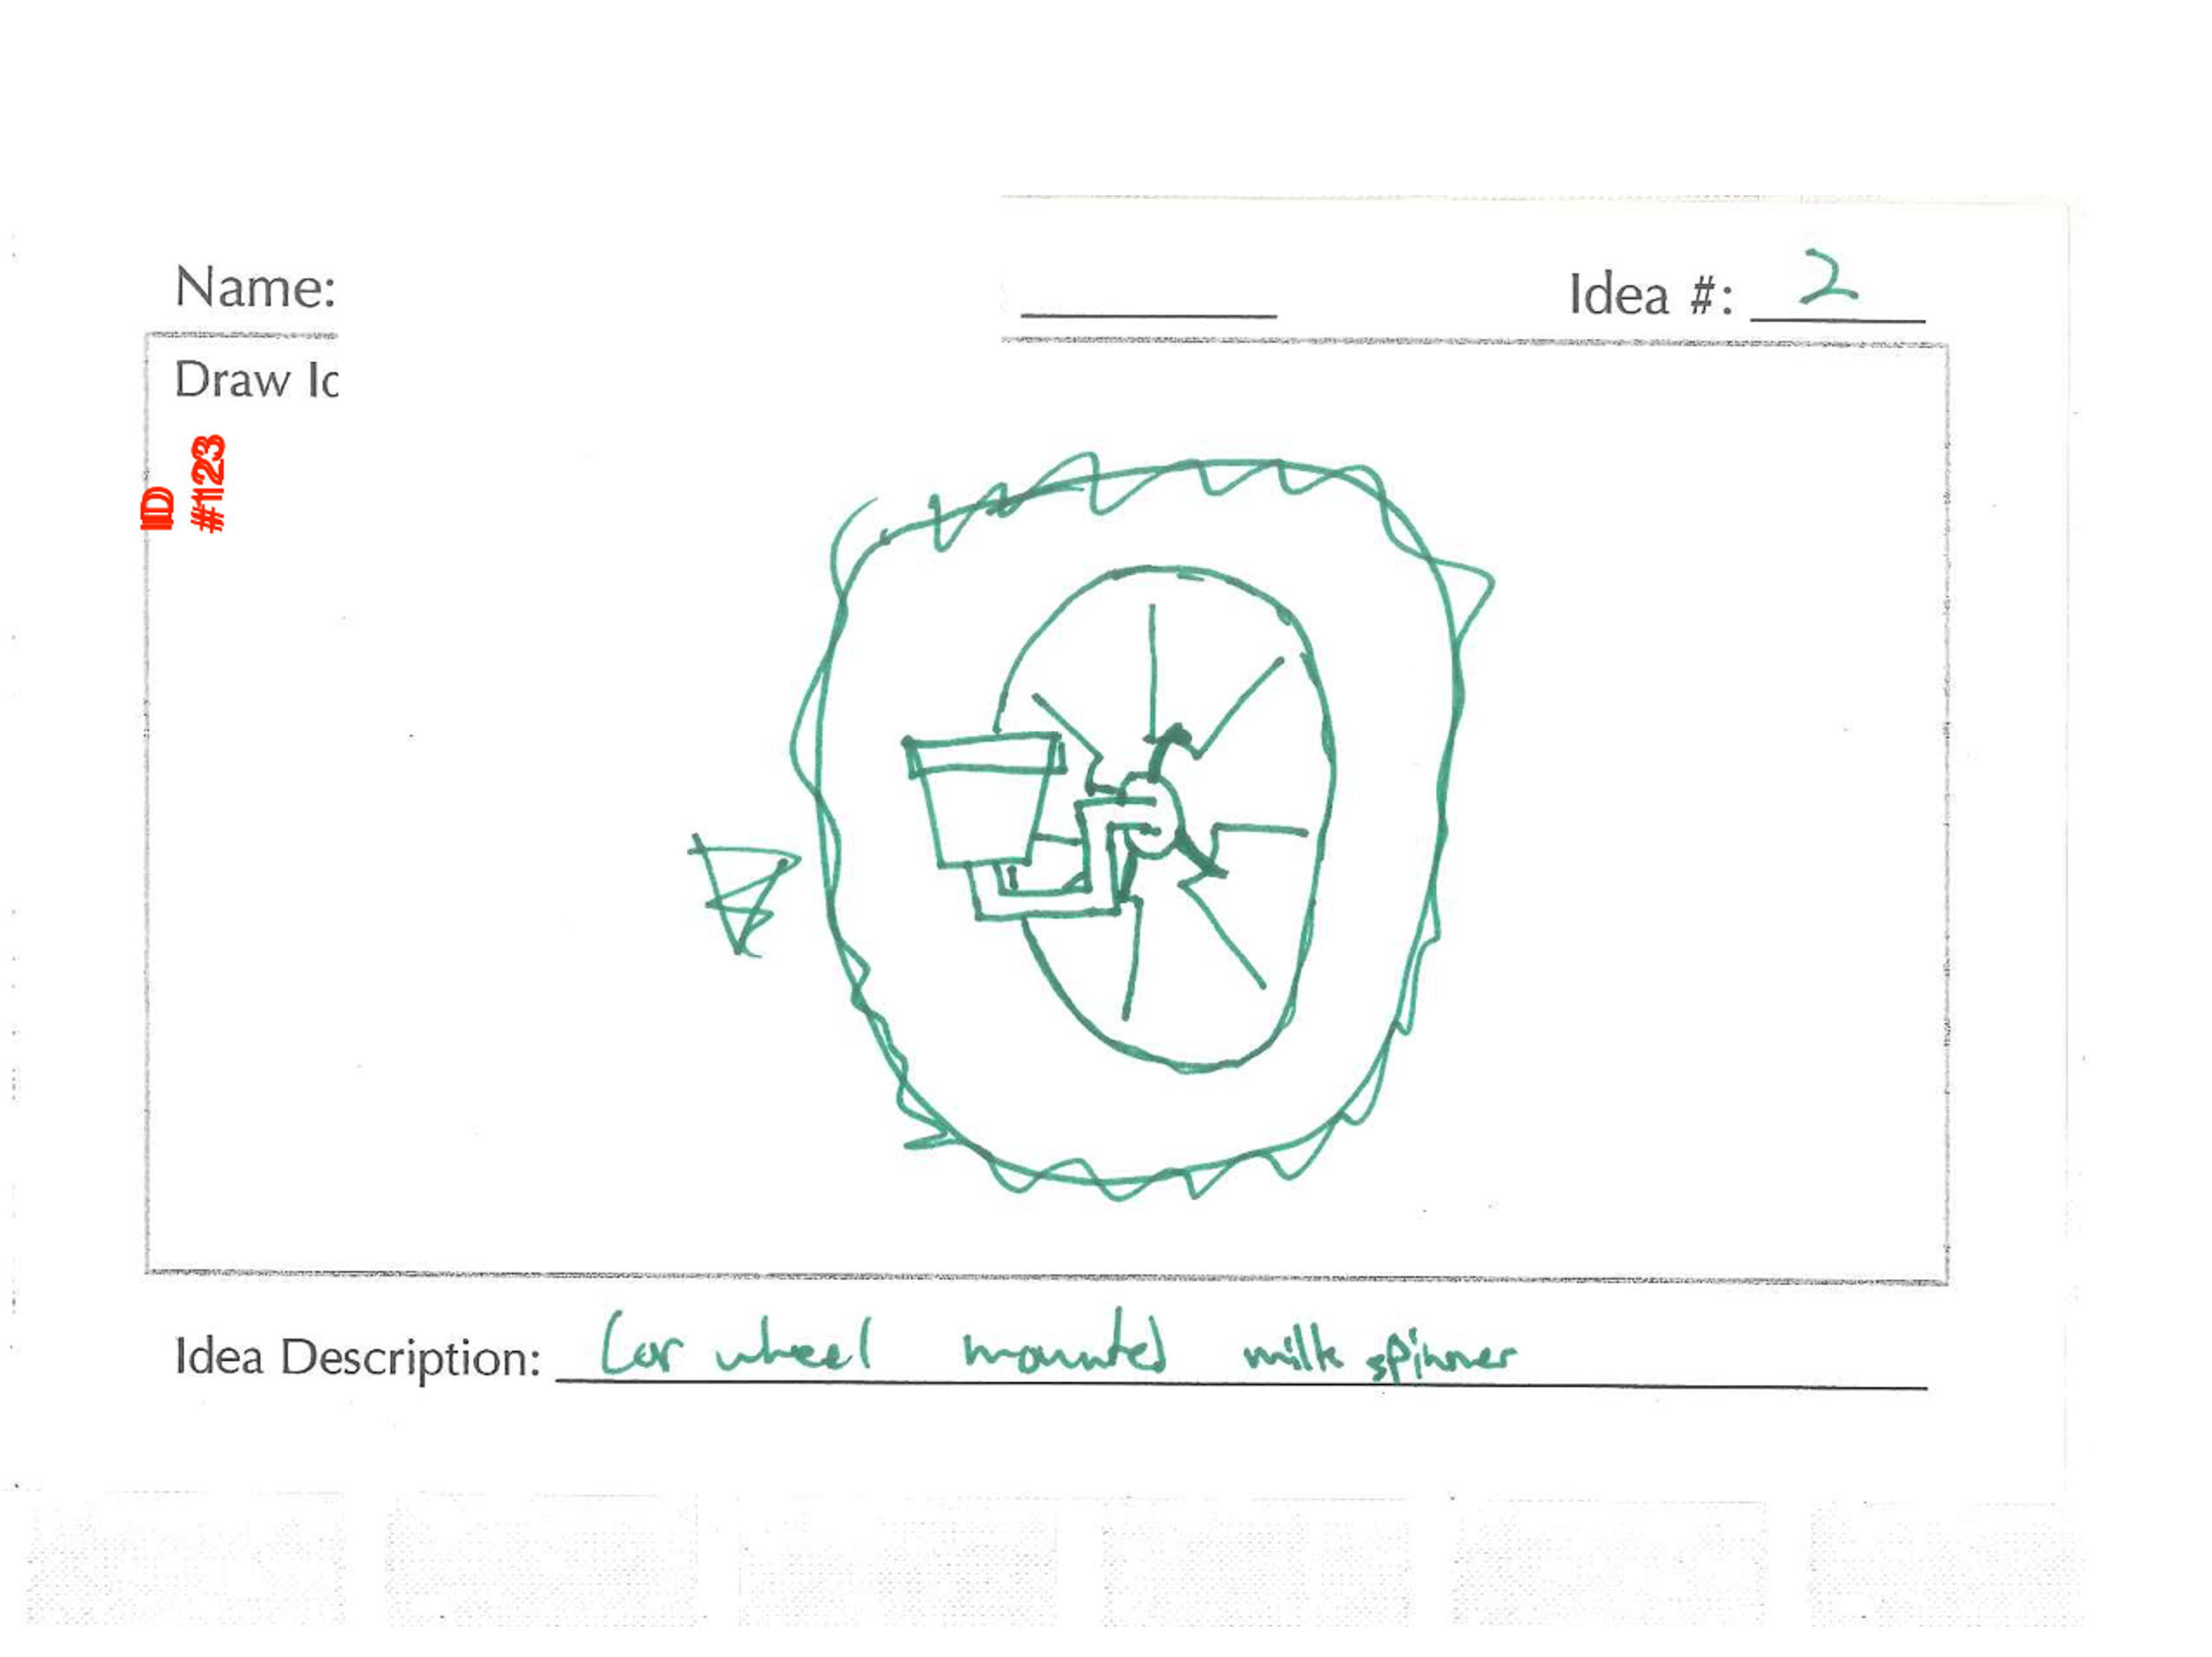 Name:
Idea #: 2
Draw Id
ID
#1123
Idea Description: Car wheel mounted milk spinner